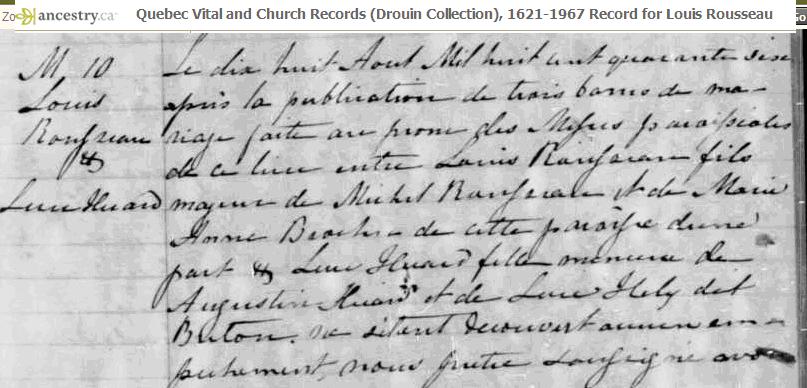 ancestry.ca Quebec Vital and Church Records (Drouin Collection), 1621-1967 Record for Louis Rousseau
M 10
Louis
Rousseau
&
Luce Huard
Le dix huit Aout Mil huit cent quarante six
après la publication de trois bans de ma-
riage faite au prone des Messes paroissiales
de ce lieu entre Louis Rousseau fils
majeur de Michel Rousseau et de Marie
Anne de cette paroisse d'une
part & Luce Huard fille mineure de
Augustin Huard et de Luce Hely dit
Breton. ne s'étant découvert aucun em-
pêchement, nous prêtre soussigné avons